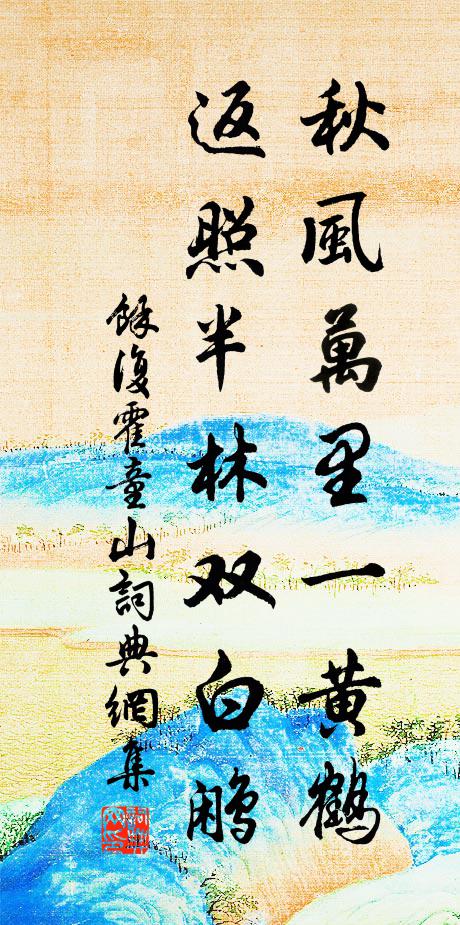 秋風萬里一黄鶴
返照半林双白鹇
餘復霍童山詞典網集